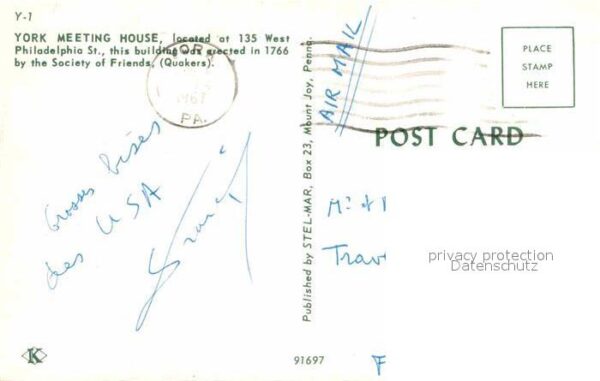 Y-1
YORK MEETING HOUSE, located at 135 West
Philadelphia St., this building was erected in 1766
by the Society of Friends, (Quakers).
YORK
1967
PA.
Grosses bises
des USA
Published by STEL-MAR, Box 23, Mount Joy, Penna.
AIR MAIL
PLACE
STAMP
HERE
POST CARD
Mr et
Trav
F
privacy protection
Datenschutz
K
91697